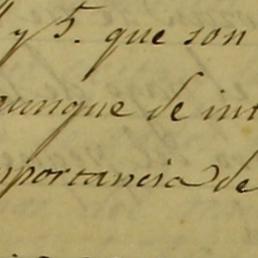 y 5. que son
aunque de int
mportancia de